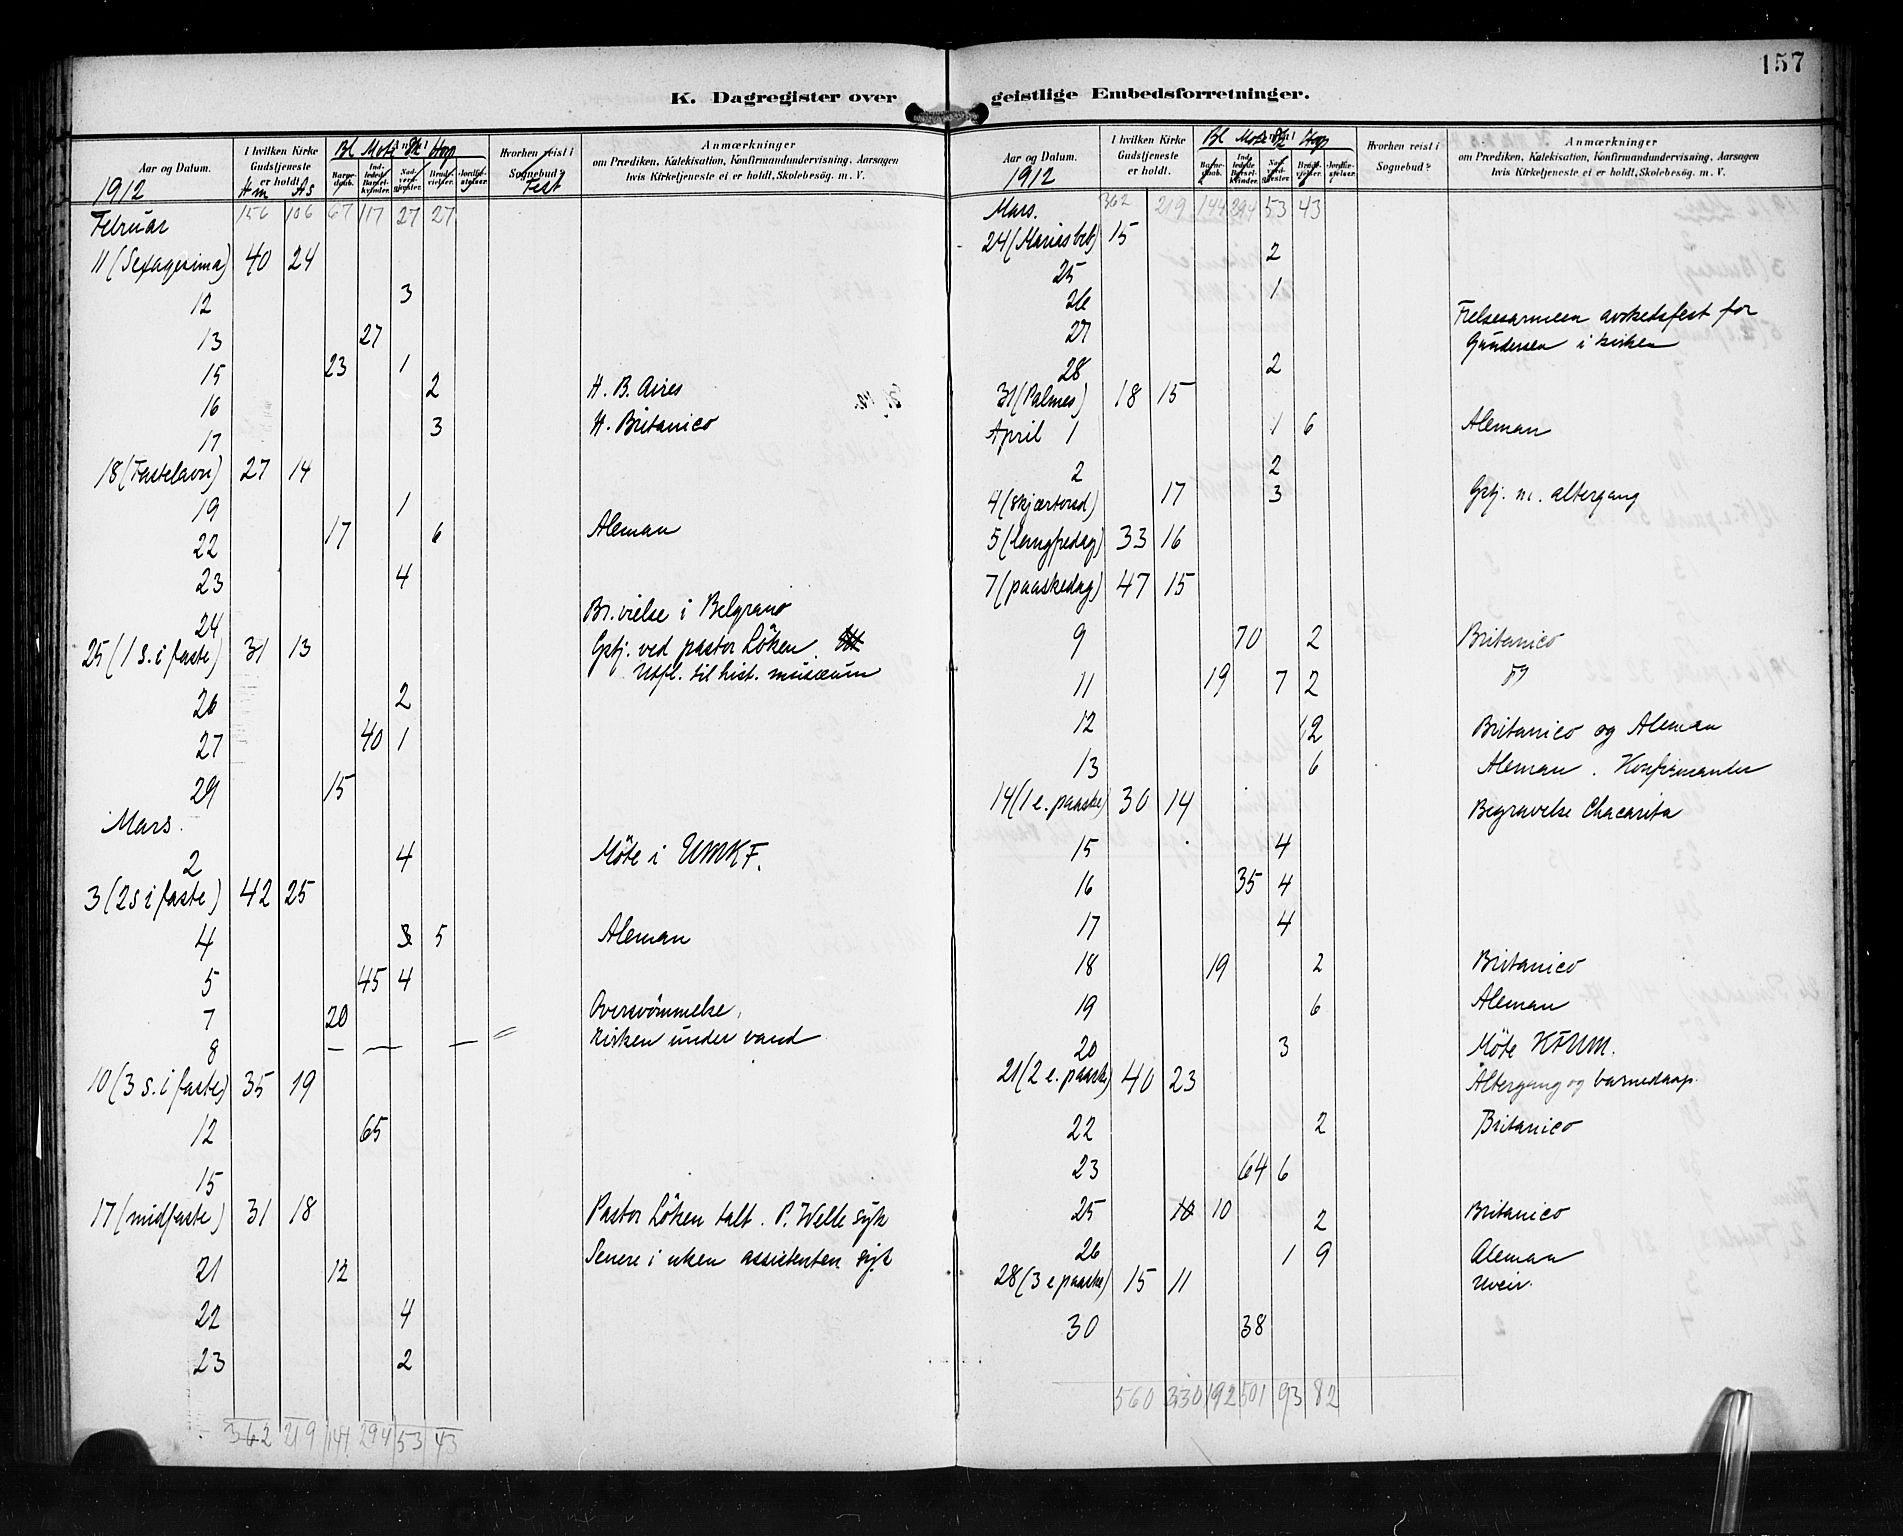 157
K. Dagregister over geistlige Embedsforretninger.
Aar og Datum.
1912
I hvilken Kirke Gudstjeneste er holdt.
Hm As
Bl Mot Sk Hop
Barnedaab. Indledede Barselkvinder. Nadvergjester. Brudevielser. Jordfæstelser.
Hvorhen reist i Sognebud?
Fest
Anmærkninger
om Prædiken, Katekisation, Konfirmandundervisning. Aarsagen
hvis Kirketjeneste ei er holdt, Skolebesög. m. V.
Februar 156 106 67 117 27 27
11 (Sexagesima) 40 24
12 3
13 27
15 23 1
16 2 H. B. Aires
17 3 H. Britanico
18 (Fastelavn) 27 14
19 1
22 17 6 Aleman
23 4
24 Br. vielse i Belgrano
25 (1 s. i faste) 31 13 Gstj. ved pastor Löken
Utfl. til hist. musæum
26 2
27 40 1
29 15
Mars.
2 4 Möte i UMKF.
3 (2 s i faste) 42 25
4 3 5 Aleman
5 45 4
7 20 Oversvömmelse,
8 — — — = kirken under vand
10 (3 s. i faste) 35 19
12 65
15
17 (midfaste) 31 18 Pastor Löken talt. P. Welle syk
21 12 Senere i uken assistenten syk
22 4
23 2
362 219 144 294 53 43
Aar og Datum.
1912
I hvilken Kirke Gudstjeneste er holdt.
Bl Mot Sk Hop
Barnedaab. Indledede Barselkvinder. Nadvergjester. Brudevielser. Jordfæstelser.
Hvorhen reist i Sognebud?
Anmærkninger
om Prædiken, Katekisation, Konfirmandundervisning, Aarsagen
hvis Kirketjeneste ei er holdt, Skolebesög. m. V.
Mars. 362 219 144 294 53 43
24 (Mariæ beb) 15
25 2
26 1
27 Frelsesarmeen avskedsfest for
Gundersen i kirken
28 2
31 (Palmes) 18 15
April 1 1 6 Aleman
2 2
4 (skjærtorsd) 17 3 Gstj. m. altergang
5 (langfredag) 33 16
7 (paaskedag) 47 15
9 70 2 Britanico
11 19 7 2
12 12 Britanico og Aleman
13 6 Aleman. Konfirmander
14 (1 e. paaske) 30 14 Begravelse Chacarita
15 4
16 35 4
17 4
18 19 2 Britanico
19 6 Aleman
20 3 Möte KFUM.
21 (2 e. paaske) 40 23 Altergang og barnedaap.
22 2 Britanico
23 64 6
25 10 10 2 Britanico
26 1 9 Aleman
28 (3 e paaske) 15 11 Uveir.
30 38
560 330 192 501 93 82